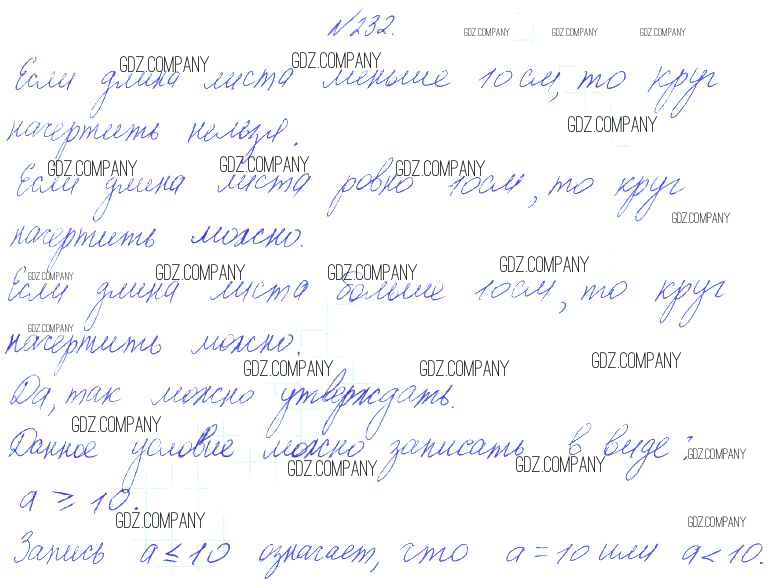 №232.
GDZ.COMPANY GDZ.COMPANY GDZ.COMPANY
GDZ.COMPANY GDZ.COMPANY
Если длина листа меньше 10 см, то круг
GDZ.COMPANY
начертить нельзя.
GDZ.COMPANY GDZ.COMPANY GDZ.COMPANY
Если длина листа ровно 10см, то круг
GDZ.COMPANY
начертить можно.
GDZ.COMPANY GDZ.COMPANY GDZ.COMPANY GDZ.COMPANY
Если длина листа больше 10см, то круг
GDZ.COMPANY
начертить можно.
GDZ.COMPANY GDZ.COMPANY GDZ.COMPANY
Да, так можно утверждать.
GDZ.COMPANY
Данное условие можно записать в виде:
GDZ.COMPANY GDZ.COMPANY GDZ.COMPANY
a ≥ 10.
GDZ.COMPANY GDZ.COMPANY
Запись a ≤ 10 означает, что a = 10 или a < 10.